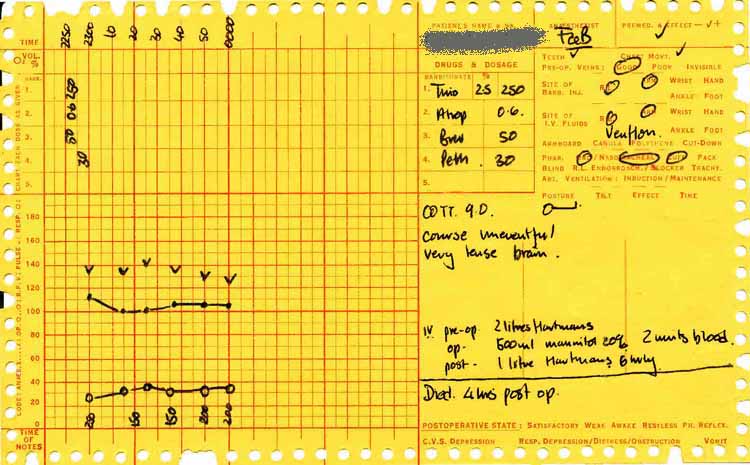 PATIENT'S NAME & No. ANAESTHETIST PREMED. & EFFECT — ✓ +
F&B
TIME 2250 2300 10 20 30 40 50 0000
VOL. %
DRUGS & DOSAGE
TEETH CHEST MOVT.
PRE-OP. VEINS: GOOD POOR INVISIBLE
BARBITURATE %
1. Thio 2.5 250
2. Atrop 0.6.
3. Brev 50
4. Peth. 30
5.
SITE OF BARB. INJ. ARM WRIST HAND
ANKLE FOOT
SITE OF I.V. FLUIDS ARM WRIST HAND
Venflon. ANKLE FOOT
ARMBOARD CANULA POLYTHENE CUT-DOWN
PHAR. CUFF PACK
BLIND R.L. ENDOBRONCH./BLOCKER TRACHY.
ART. VENTILATION: INDUCTION/MAINTENANCE
POSTURE TILT EFFECT TIME
1. 250
0.6
2.
3. 50
4. 30
5.
180
160
140
120
100
80
60
40
20
0
250 150 150 200 200
TIME OF NOTES
COTT. 9.0.
course uneventful
very tense brain.
IV pre-op 2 litres Hartmans
op. 500ml mannitol 20% 2 units blood.
post. 1 litre Hartmans 6 hrly.
Died. 4 hrs post op.
POSTOPERATIVE STATE: SATISFACTORY WEAK AWAKE RESTLESS PH. REFLEX.
C.V.S. DEPRESSION RESP. DEPRESSION/DISTRESS/OBSTRUCTION VOMIT